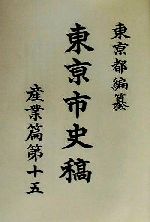 東京都編纂
東京市史稿
産業篇第十五